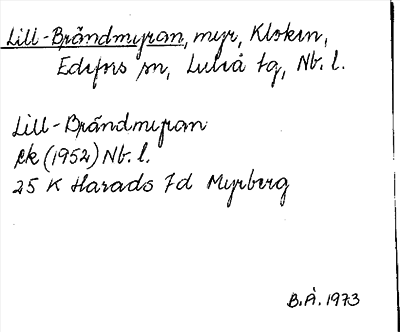 Lill-Brändmyran, myr, Kloken,
Edefors sn, Luleå tg, Nb. l.
Lill-Brändmyran
ek (1952) Nb. l.
25 K Harads 7d Myrberg
B.Å. 1973